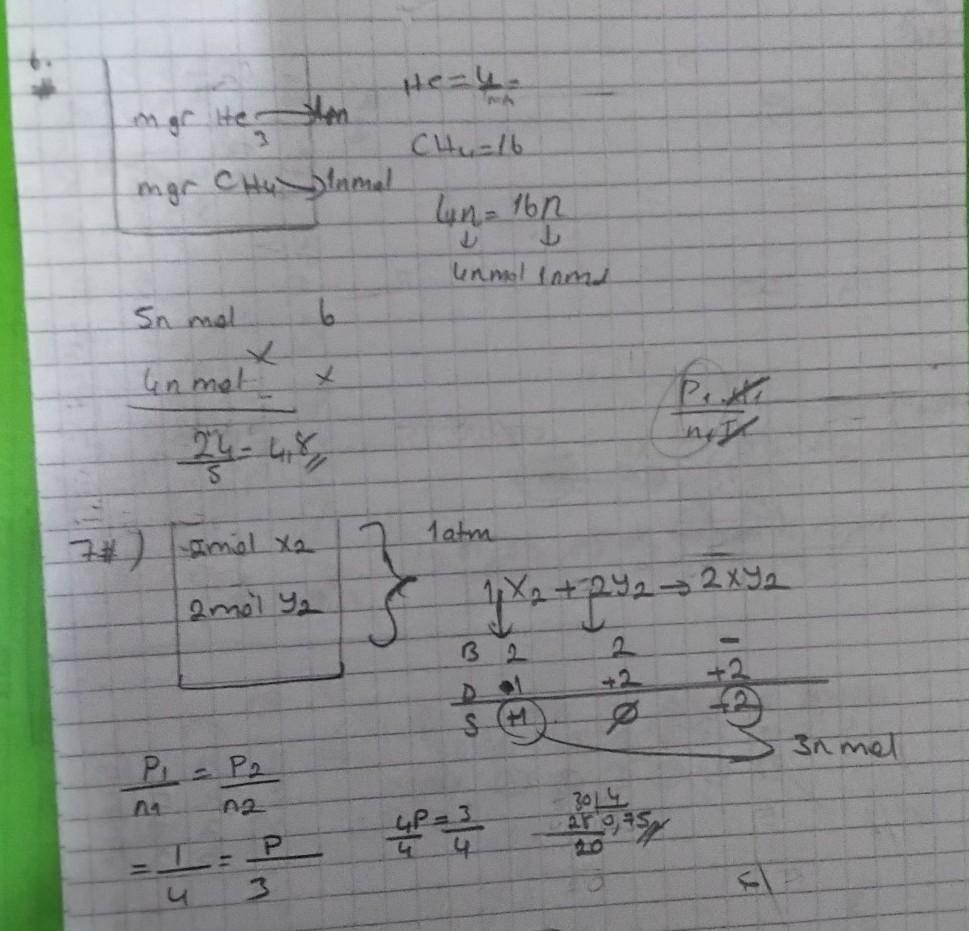 6.
#
mgr He → 4n
3
mgr CH4 → 1nmol
He = 4
CH4 = 16
4n = 16n
↓ ↓
4nmol 1nmol
5n mol 6
x
4n mol x
24/5 = 4,8
P1 . V1
n1 T
7#)
2mol x2
2mol y2
1atm
1 X2 + 2y2 → 2xy2
B 2 2 -
D 1 +2 +2
S +1 ∅ +2
3n mol
P1/n1 = P2/n2
= 1/4 = P/3
4P/4 = 3/4
30 | 4
28 0,75
20